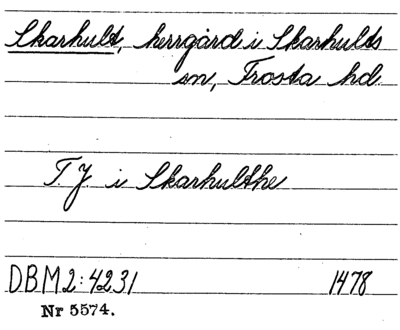 Skarhult, herrgård i Skarhults
sn, Frosta hd.
T. J. i Skarhulthe
DBM2:4231 1478
Nr 5574.